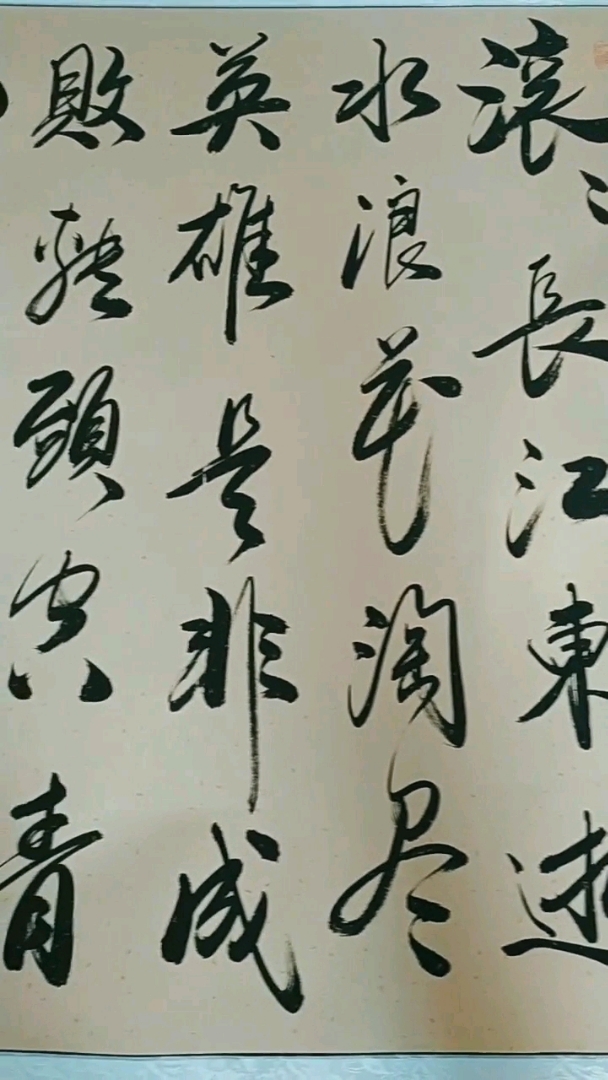 滚〻長江東逝
水浪花淘尽
英雄是非成
敗轉頭空青